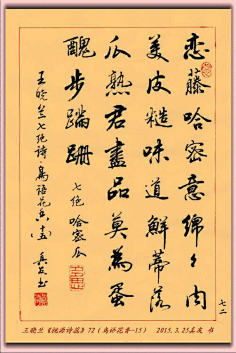 恋藤哈密意绵々肉
美皮糙味道鮮蒂落
瓜熟君盡品莫為蛋
醜步蹒跚
七绝 哈密瓜
王晓兰七绝诗 鳥語花香(十五) 吴友书
七二
王晓兰《桃源诗蕊》72（鸟语花香-15） 2015.3.25吴友 书